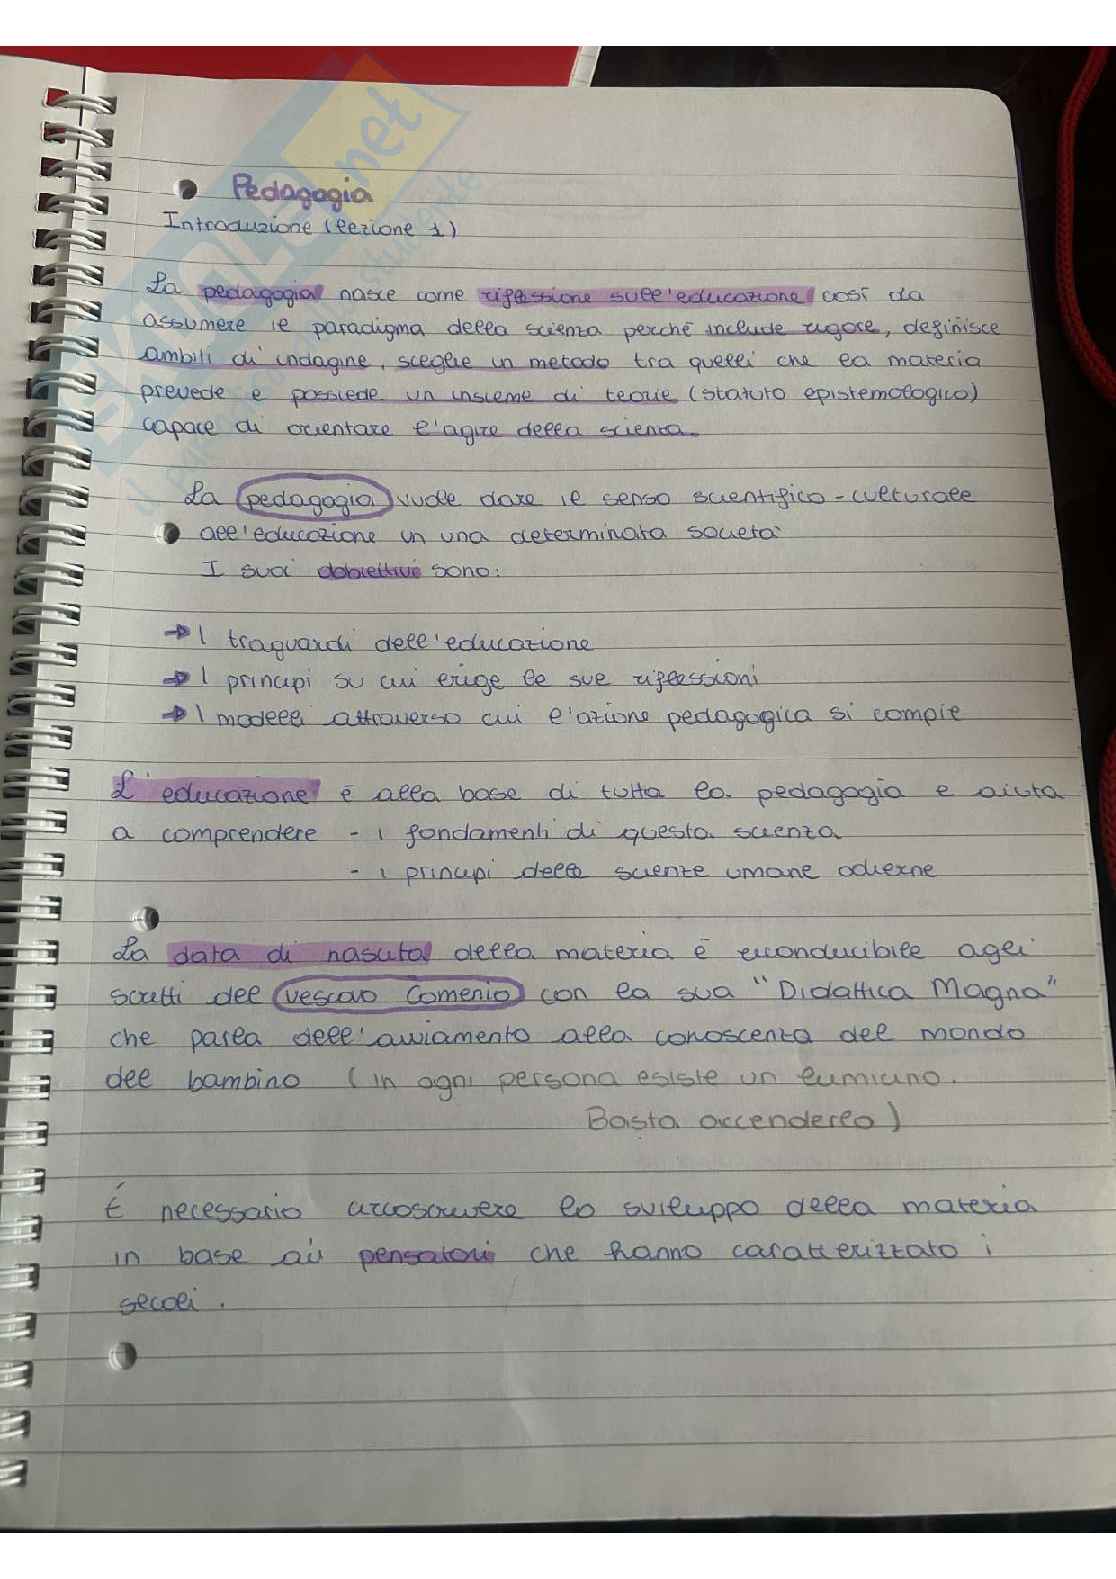 Pedagogia
Introduzione (lezione 1)
La pedagogia nasce come riflessione sull'educazione così da
assumere le paradigma della scienza perché include rigore, definisce
ambiti di indagine, sceglie un metodo tra quelli che la materia
prevede e possiede un insieme di teorie (statuto epistemologico)
capace di orientare l'agire della scienza.
La pedagogia vuole dare il senso scientifico-culturale
all'educazione in una determinata società
I suoi obbiettivi sono:
→ I traguardi dell'educazione
→ I principi su cui erige le sue riflessioni
→ I modelli attraverso cui l'azione pedagogica si compie
L'educazione è alla base di tutta la pedagogia e aiuta
a comprendere - i fondamenti di questa scienza
- i principi delle scienze umane odierne
La data di nascita della materia è riconducibile agli
scritti del vescovo Comenio con la sua "Didattica Magna"
che parla dell'avviamento alla conoscenza del mondo
del bambino (in ogni persona esiste un lumicino.
Basta accenderlo)
É necessario circoscrivere lo sviluppo della materia
in base ai pensatori che hanno caratterizzato i
secoli.